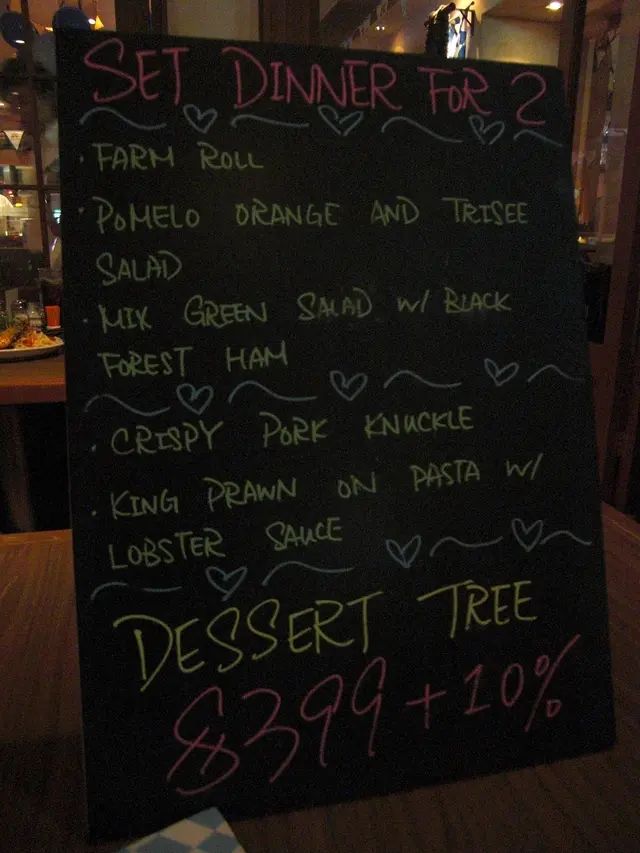 SET DINNER FOR 2
· FARM ROLL
· POMELO ORANGE AND TRISEE
SALAD
· MIX GREEN SALAD W/ BLACK
FOREST HAM
· CRISPY PORK KNUCKLE
· KING PRAWN ON PASTA W/
LOBSTER SAUCE
DESSERT TREE
$399 + 10%